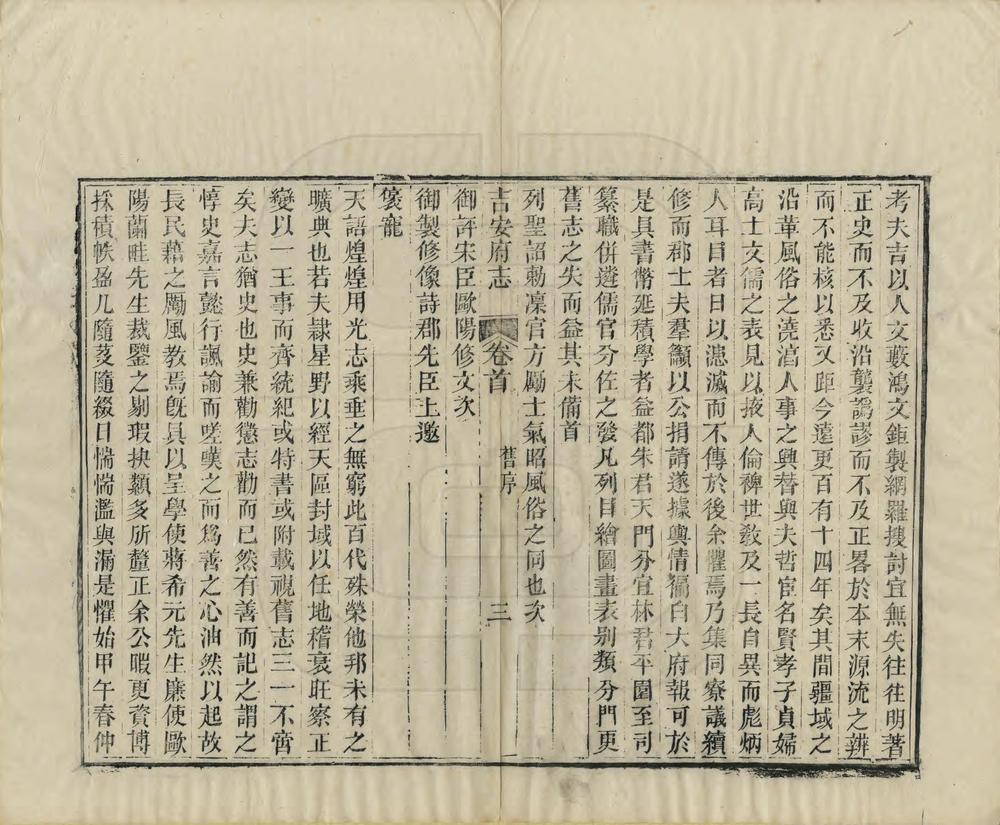 考夫吉以人文藪鴻文鉅製網羅搜討宜無失往往明著
正史而不及收沿襲譌謬而不及正畧於本末源流之辨
而不能核以悉又距今遠更百有十四年矣其間疆域之
沿革風俗之澆漓人事之興替與夫哲宦名賢孝子貞婦
高士文儒之表見以掖人倫裨世敎及一長自異而彪炳
人耳目者日以漶滅而不傳於後余懼焉乃集同寮議續
修而郡士夫羣籲以公捐請遂據輿情徧白大府報可於
是具書幣延積學者益都朱君天門分宜林君平園至司
纂職併遴儒官分佐之發凡列目繪圖畫表别類分門更
舊志之失而益其未備首
列聖詔勅凜官方勵士氣昭風俗之同也次
吉安府志 卷首 舊序 三
御評宋臣歐陽修文次
御製修像詩郡先臣上邀
襃寵
天語煌煌用光志乘垂之無窮此百代殊榮他邦未有之
曠典也若夫隷星野以經天區封域以任地稽衰旺察正
變以一王事而齊統紀或特書或附載視舊志三一不啻
矣夫志猶史也史兼勸懲志勸而已然有善而記之謂之
惇史嘉言懿行諷諭而嗟嘆之而爲善之心油然以起故
長民藉之勵風教焉旣具以呈學使蔣希元先生廉使歐
陽蘭畦先生裁鑒之剔瑕抉纇多所釐正余公暇更資博
採積帙盈几隨芟隨綴日惴惴濫與漏是懼始甲午春仲